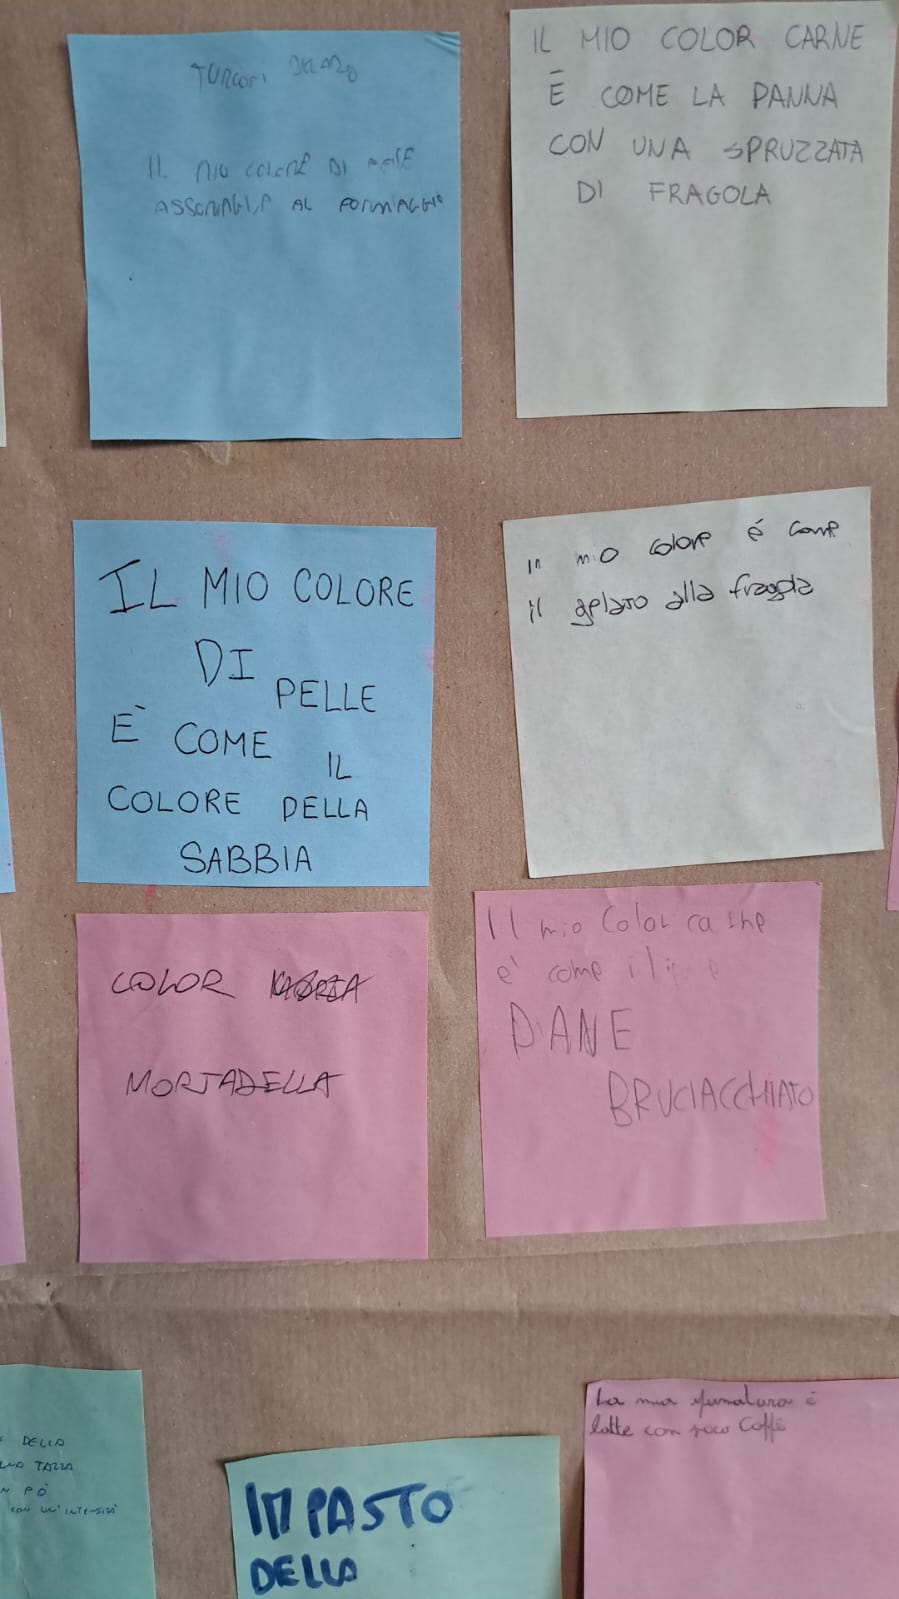 IL MIO COLORE DI
ASSOMIGLIA AL FORMAGGIO
IL MIO COLOR CARNE
È COME LA PANNA
CON UNA SPRUZZATA
DI FRAGOLA
IL MIO COLORE
DI PELLE
E' COME IL
COLORE DELLA
SABBIA
mio colore é come
il gelato alla fragola
COLOR
MORTADELLA
Il mio Color
e' come il
PANE
BRUCIACCHIATO
DELLA
TAZZA
PÒ
CON UN'INTENSITÀ
IMPASTO
DELLA
La mia sfumatura è
latte con poco Caffè